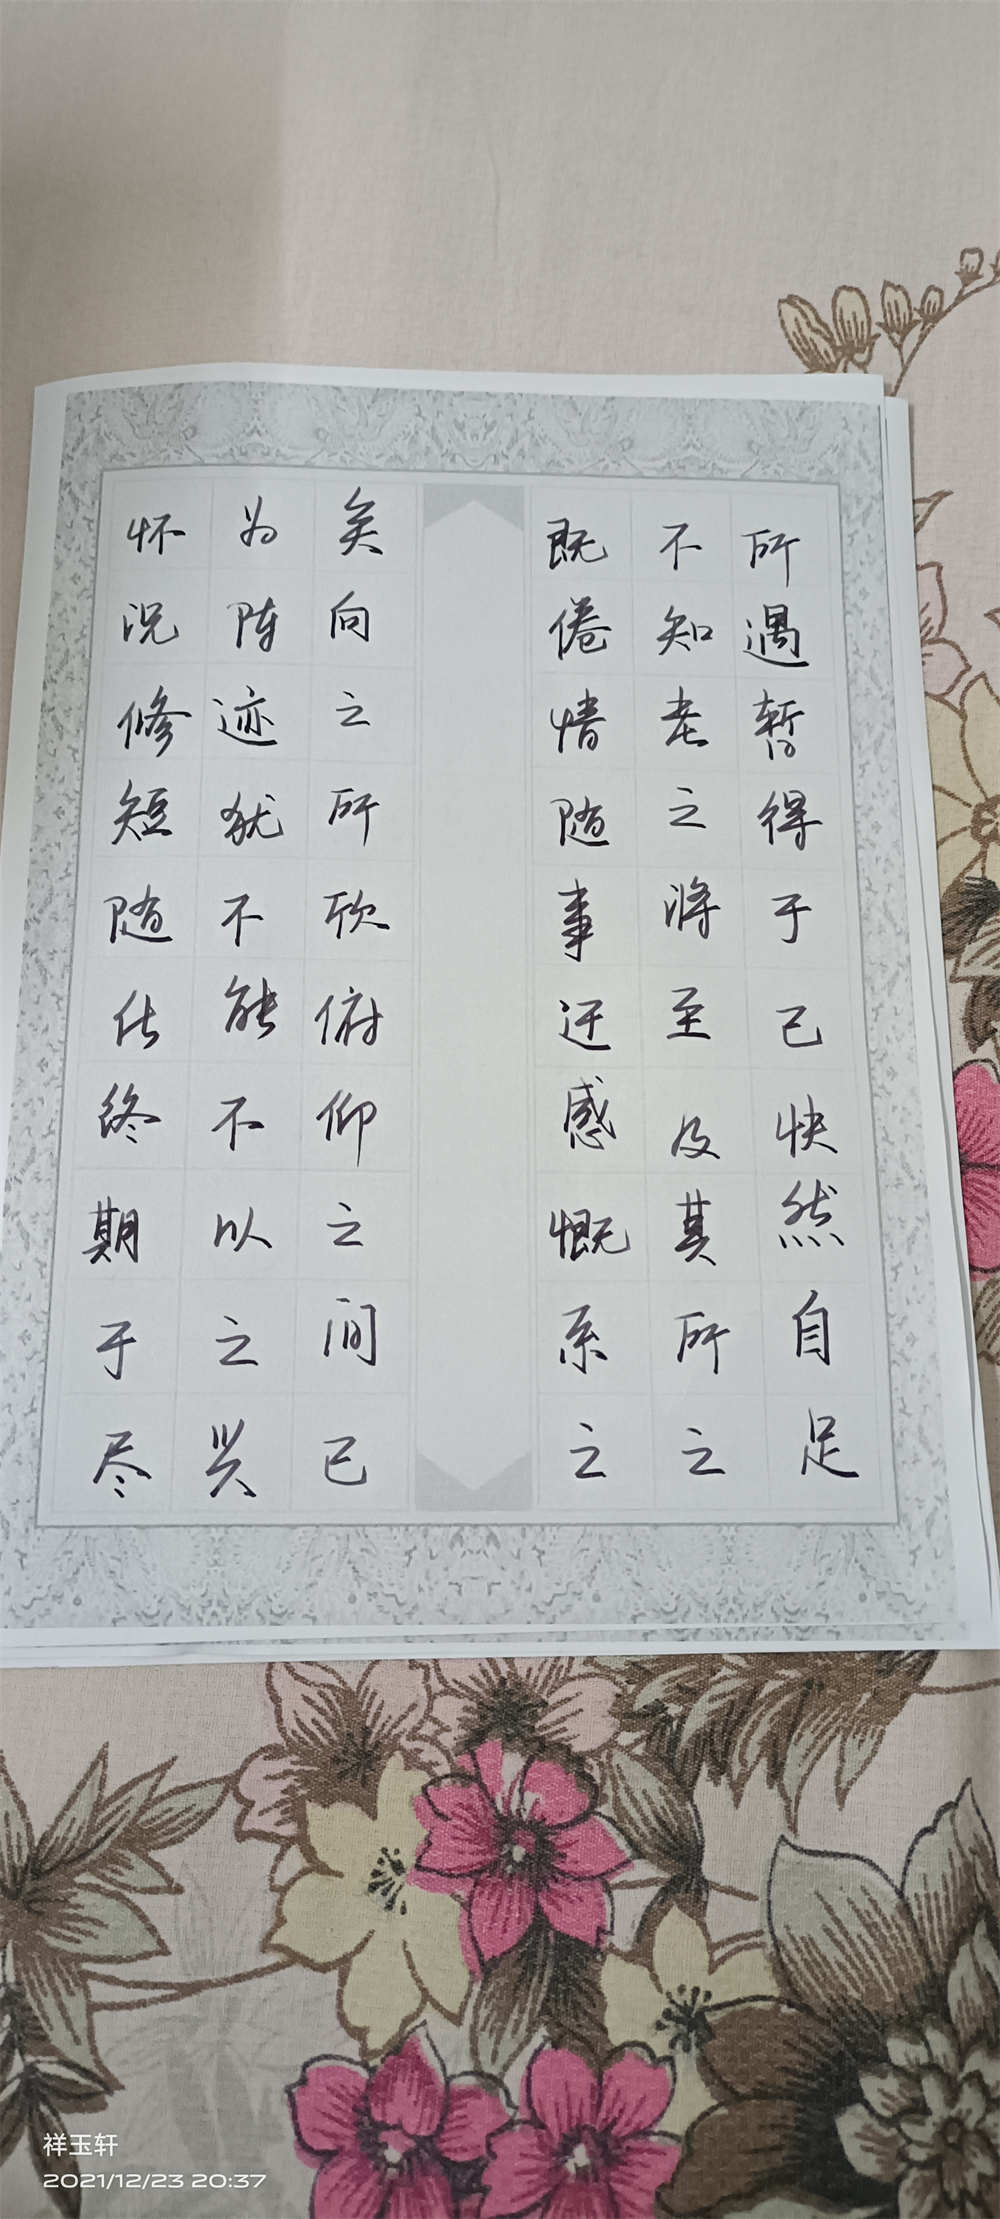 所遇暂得于己快然自足
不知老之将至及其所之
既倦情随事迁感慨系之
矣向之所欣俯仰之间已
为陈迹犹不能不以之兴
怀况修短随化终期于尽
祥玉轩
2021/12/23 20:37